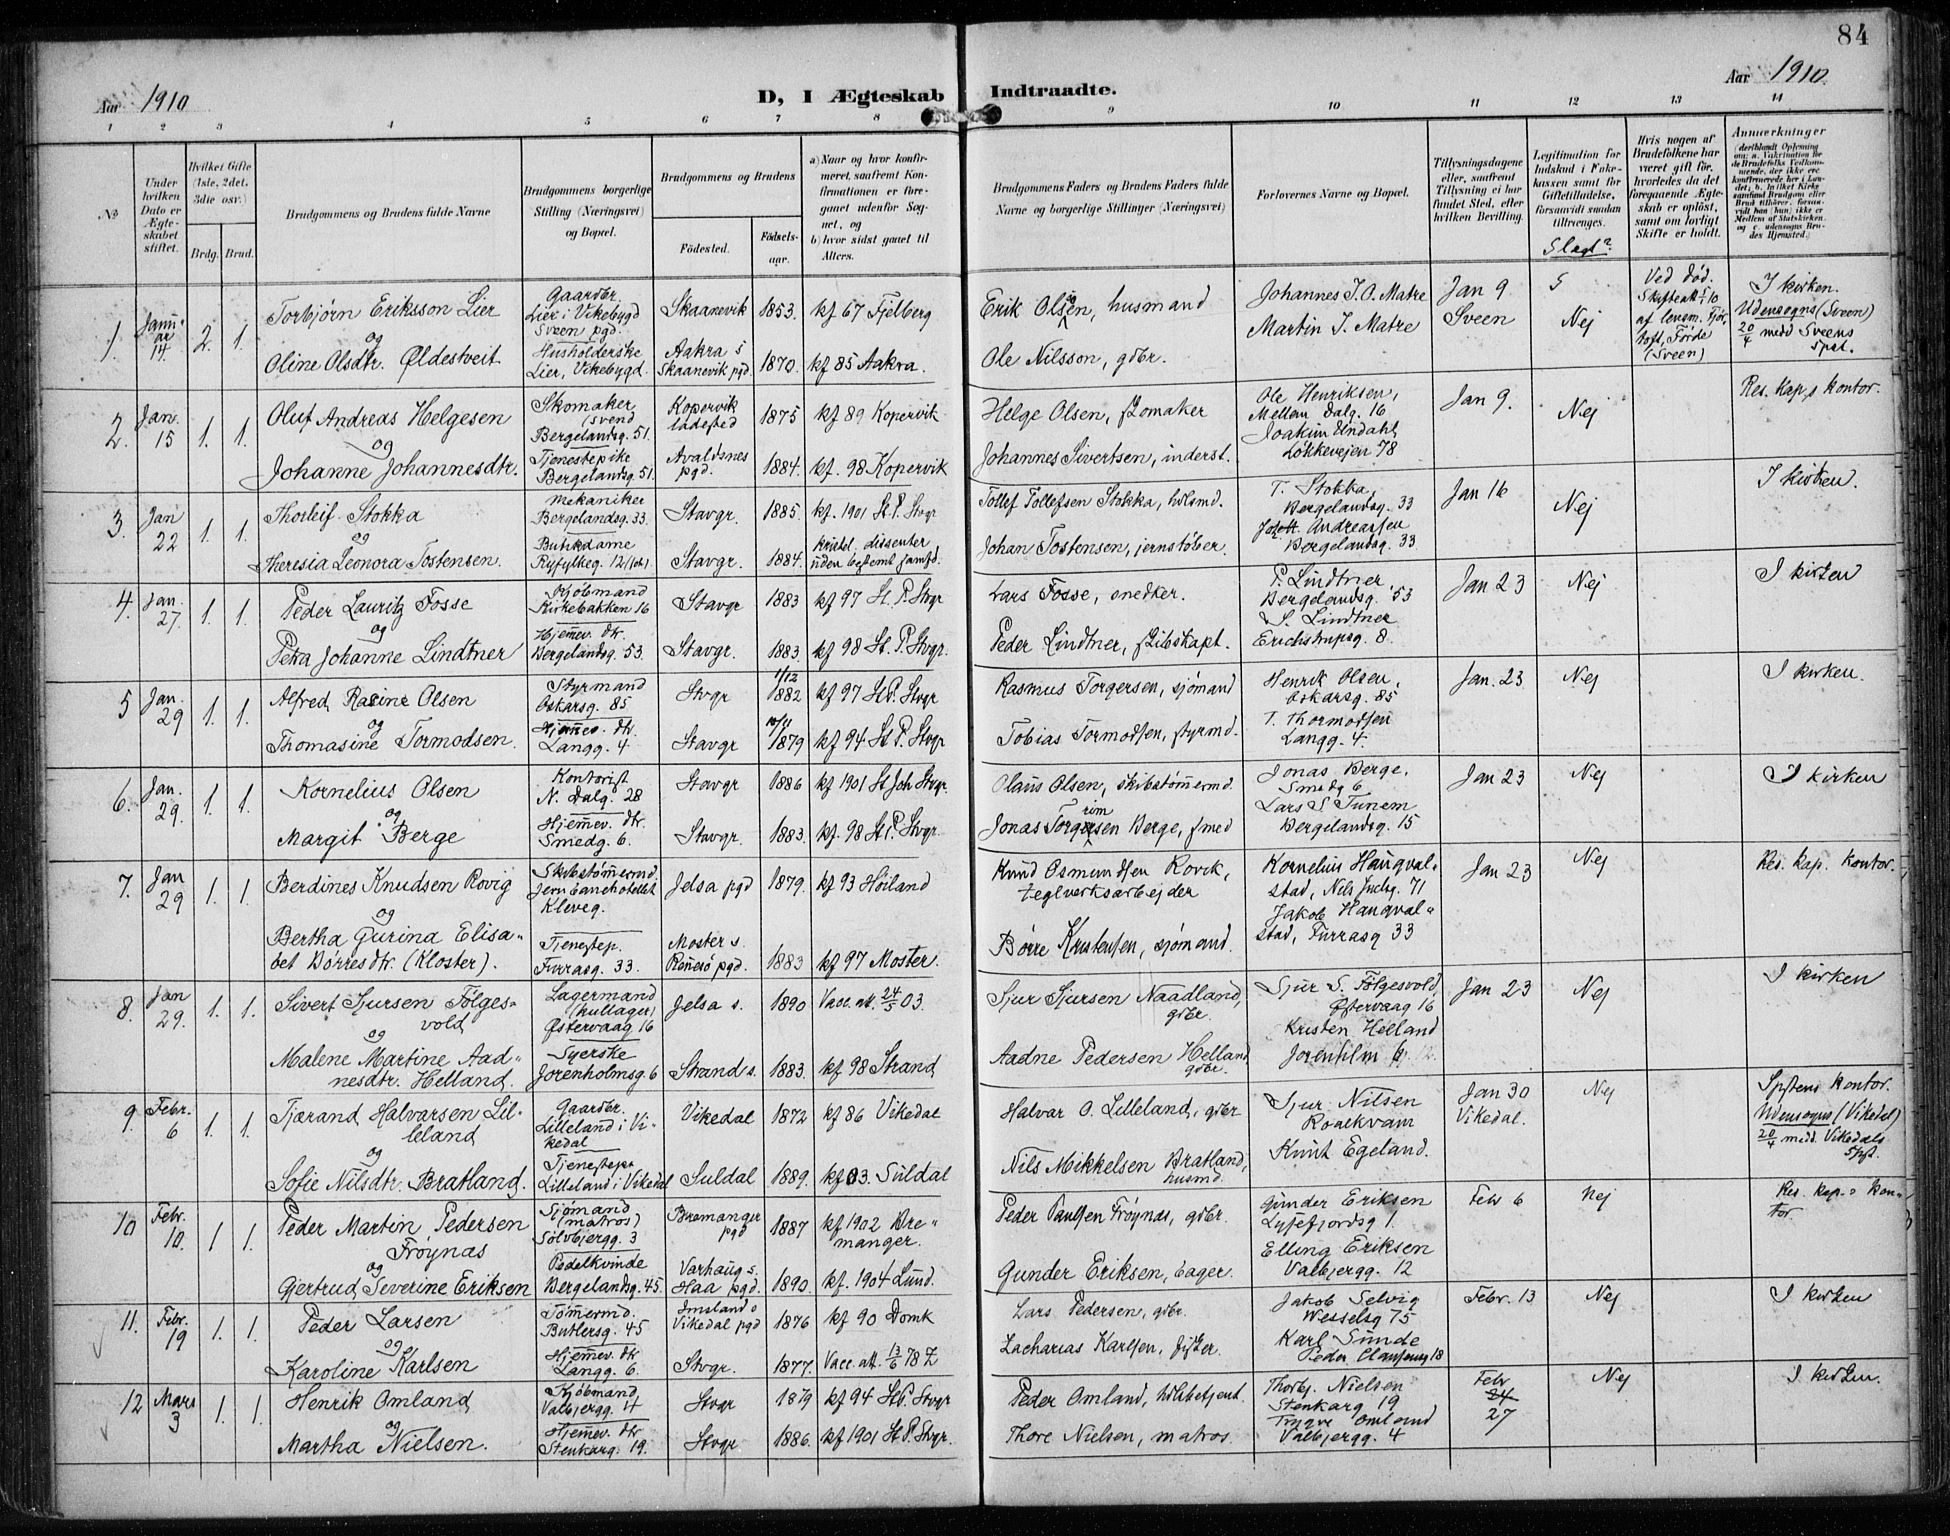 84
Aar 1910
D, I Ægteskab Indtraadte.
Aar 1910.
1 2 3 4 5 6 7 8 9 10 11 12 13 14
No
Under hvilken Dato er Ægteskabet stiftet.
Hvilket Gifte (1ste, 2det, 3die osv.)
Brdg. Brud.
Brudgommens og Brudens fulde Navne
Brudgommens borgerlige Stilling (Næringsvei) og Bopæl.
Brudgommens og Brudens
Fødested.
Fødselsaar.
a) Naar og hvor konfirmeret, saafremt Konfirmationen er foregaaet udenfor Sognet, og
b) hvor sidst gaaet til Alters.
Brudgommens Faders og Brudens Faders fulde Navne og borgerlige Stillinger (Næringsvei)
Forlovernes Navne og Bopæl.
Tillysningsdagene eller, saafremt Tillysning ei har fundet Sted, efter hvilken Bevilling.
Legitimation for Indskud i Enkekassen samt for Giftetilladelse, forsaavidt saadan tiltrænges.
Slægt?
Hvis nogen af Brudefolkene har været gift før, hvorledes da det foregaaende Ægteskab er opløst, samt om lovligt Skifte er holdt.
Anmerkninger
(deriblandt Oplysning om: a. Vakcination for de Brudefolks Vedkommende, der ikke ere konfirmerede her i Landet; b. hvilket Kirkesamfund Brudgom eller Brud tilhører, forsaavidt han (hun) ikke er Medlem af Statskirken, og c. udensogns Brudes Hjemsted.)
1. Januar 14 2. 1.
Torbjørn Eriksson Lier
og
Oline Olsdtr. Øldestveit
Gaardbr.
Lier i Vikebygd
Sveen pgd.
Husholderske
Lier, Vikebygd.
Skaanevik 1853. kf 67 Fjelberg
Aakra s
Skaanevik pgd. 1870. kf 85 Aakra.
Erik Olsen, husmand
Ole Nilsson, gdbr.
Johannes J. O. Matre
Martin J. Matre
Jan 9
Sveen
S
Nej
Ved død.
Skifteatt 1/10
af lensm. Fjør-
toft, Førde
(Sveen)
I kirken.
Udensogns (Sveen)
20/4 medd Sveens
Spst.
2. Jan. 15 1. 1.
Oluf Andreas Helgesen
og
Johanne Johannesdtr.
Skomaker
(svend
Bergelandsg. 51.
Tjenestepike
Bergelandsg. 51.
Kopervik
ladested 1875 kf 89 Kopervik
Avaldsnes
pgd. 1884. kf. 98 Kopervik
Helge Olsen, skomaker
Johannes Sivertsen, inderst.
Ole Henriksen,
Mellem Dalg. 16
Joakim Undahl,
Løkkevejen 78
Jan 9.
Nej
Res. Kap.s kontor.
3. Jan 22 1. 1.
Thorleif Stokka
og
Theresia Leonora Tostensen.
Mekaniker
Bergelandsg. 33.
Butikdame
Ryfylkeg. 12
Stavgr. 1885. kf. 1901 St. P. Stvgr
Stavgr. 1884. kristel. dissenter
uden bestemt samfd.
Tollef Tollefsen Stokka,
Johan Tostensen, jernstøber.
T. Stokka,
Bergelandsg. 33
Andreassen
Bergelandsg. 33
Jan 16
Nej
I kirken.
4. Jan. 27. 1. 1.
Peder Lauritz Fosse
og
Petra Johanne Lindtner
Kjøbmand
Kirkebakken 16
Hjemmev. dtr.
Bergelandsg. 53.
Stavgr 1883 kf 97 St. P. Stvgr
Stavgr. 1883. kf 98 St. P. Stvgr.
Lars Fosse, snedker.
Peder Lindtner, skibskapt.
P. Lindtner,
Bergelandsg. 53
S. Lindtner
Erichstrupsg. 8.
Jan 23
Nej
I kirken
5 Jan. 29 1. 1.
Alfred Rasine Olsen
og
Thomasine Tormodsen.
Styrmand
Oskarsg. 85
Hjemmev. dtr.
Langg. 4.
Stvgr 1/12 1882 kf 97 St P. Stvgr
Stavgr 10/11 1879 kf 94 St P. Stvgr
Rasmus Torgersen, sjømand
Tobias Tormodsen, styrmd.
Henrik Olsen,
Oskarsg. 85
T. Thormodsen
Langg. 4.
Jan. 23
Nej
I kirken.
6. Jan. 29. 1. 1.
Kornelius Olsen
og
Margit Berge
Kontorist
N. Dalg. 28
Hjemmev. dtr.
Smedg. 6.
Stavgr 1886 kf 1901 St Joh Stvgr.
Stavgr. 1883. kf. 98 St. P. Stvgr.
Olaus Olsen, skibstømmermd.
Jonas Torgersen Berge, smed
rim
Jonas Berge,
Smedg 6
Lars S Tunem
Bergelandsg. 15
Jan 23
Nej
I kirken
7. Jan 29 1. 1.
Berdines Knudsen Rovig
og
Bertha Gurina Elisa-
bet Børresdtr. (Kloster).
Skibstømmermd.
Jernbanehotellet
Kleveg.
Tjenestep.
Furrasg. 33.
Jelsa pgd 1879. kf 93 Høiland
Moster s.
Rennesø pgd. 1883 kf 97 Moster.
Knud Osmundsen Rovik,
teglverksarbejder
Børre Kristensen, sjømand.
Kornelius Haugval-
stad, Nils Juelsg. 71
Jakob Haugval-
stad, Furrasg 33
Jan 23
Nej
Res. Kap. kontor.
8. Jan 29. 1. 1.
Sivert Sjursen Følges-
vold
og
Malene Martine Aad-
nesdtr. Helland.
Lagermand
(kullager)
Østervaag 16
Syerske
Jorenholmsg. 6
Jelsa s. 1890 Vacc. att. 24/5 03.
Strand s. 1883. kf 98 Strand
Sjur Sjursen Naadland,
gdbr.
Aadne Pedersen Helland
gdbr.
Sjur S. Følgesvold,
Østervaag 16
Kristen Helland
Jorenholm
Jan 23
Nej
I kirken
9. Febr. 6 1. 1.
Tjærand Halvarsen Lil-
leland
og
Sofie Nilsdtr. Bratland.
Gaardbr.
Lilleland i Vi-
kedal
Tjenestepi
Lilleland i Vikedal
Vikedal 1872 kf 86 Vikedal
Suldal 1889. kf 03. Suldal
Halvar O. Lilleland, gdbr
Nils Mikkelsen Bratland,
husmd.
Sjur Nilsen
Roalkvam
Knut Egeland.
Jan 30
Vikedal.
Nej
Spstens kontor.
Udensogns (Vikedal)
20/4 medd. Vikedals
Spst.
10 Febr. 10. 1 1.
Peder Martin Pedersen
Frøynas
og
Gjertrud Severine Eriksen
Sjømand
(matros)
Sølvbjergg. 3
Bergelandsg. 45.
Bremanger
pgd 1887 kf 1902 Bre-
manger.
Varhaug s.
Haa pgd. 1890. kf. 1904 Lund.
Peder Paulsen Frøynas, gdbr.
Gunder Eriksen, bager.
Gunder Eriksen
Lysefjordsg 1.
Elling Eriksen
Valbjergg. 12
Febr 6
Nej
Res. Kap.s kon-
tor.
11. Febr. 19 1. 1.
Peder Larsen
og
Karoline Karlsen
Tømmermd.
Butlersg. 45
Hjemmev. dtr
Langg. 6.
Imsland s
Vikedal pgd 1876 kf 90 Domk
Stvgr. 1877. Vacc. att. 13/6 78 Z
Lars Pedersen, gdbr.
Zacharias Karlsen, fisker.
Jakob Selvig
Wesselsg 75
Karl Sunde
Peder Clausensg 18
Febr. 13
Nej
I kirken
12 Mars 3 1. 1.
Henrik Omland
og
Martha Nielsen.
Kjøbmand
Valbjergg. 4
Hjemmev. dtr
Stenkarg. 19.
Stvgr 1879 kf 94 St P. Stvgr
Stvgr 1886. kf 1901 St P. Stvgr.
Peder Omland,
Thore Nielsen, matros.
Thorbj. Nielsen
Stenkarg 19
Trygve Omland
Valbjergg. 4
Febr
24
27
Nej
I kirken.